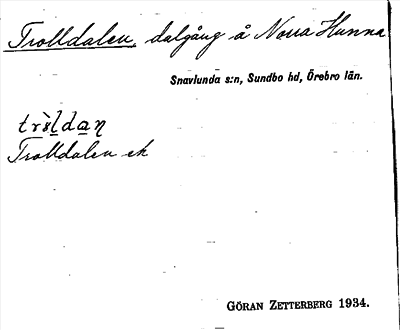 Trolldalen, dalgång å Norra Hunna
Snavlunda s:n, Sundbo hd, Örebro län.
tròldaṉ
Trolldalen ek
GÖRAN ZETTERBERG 1934.